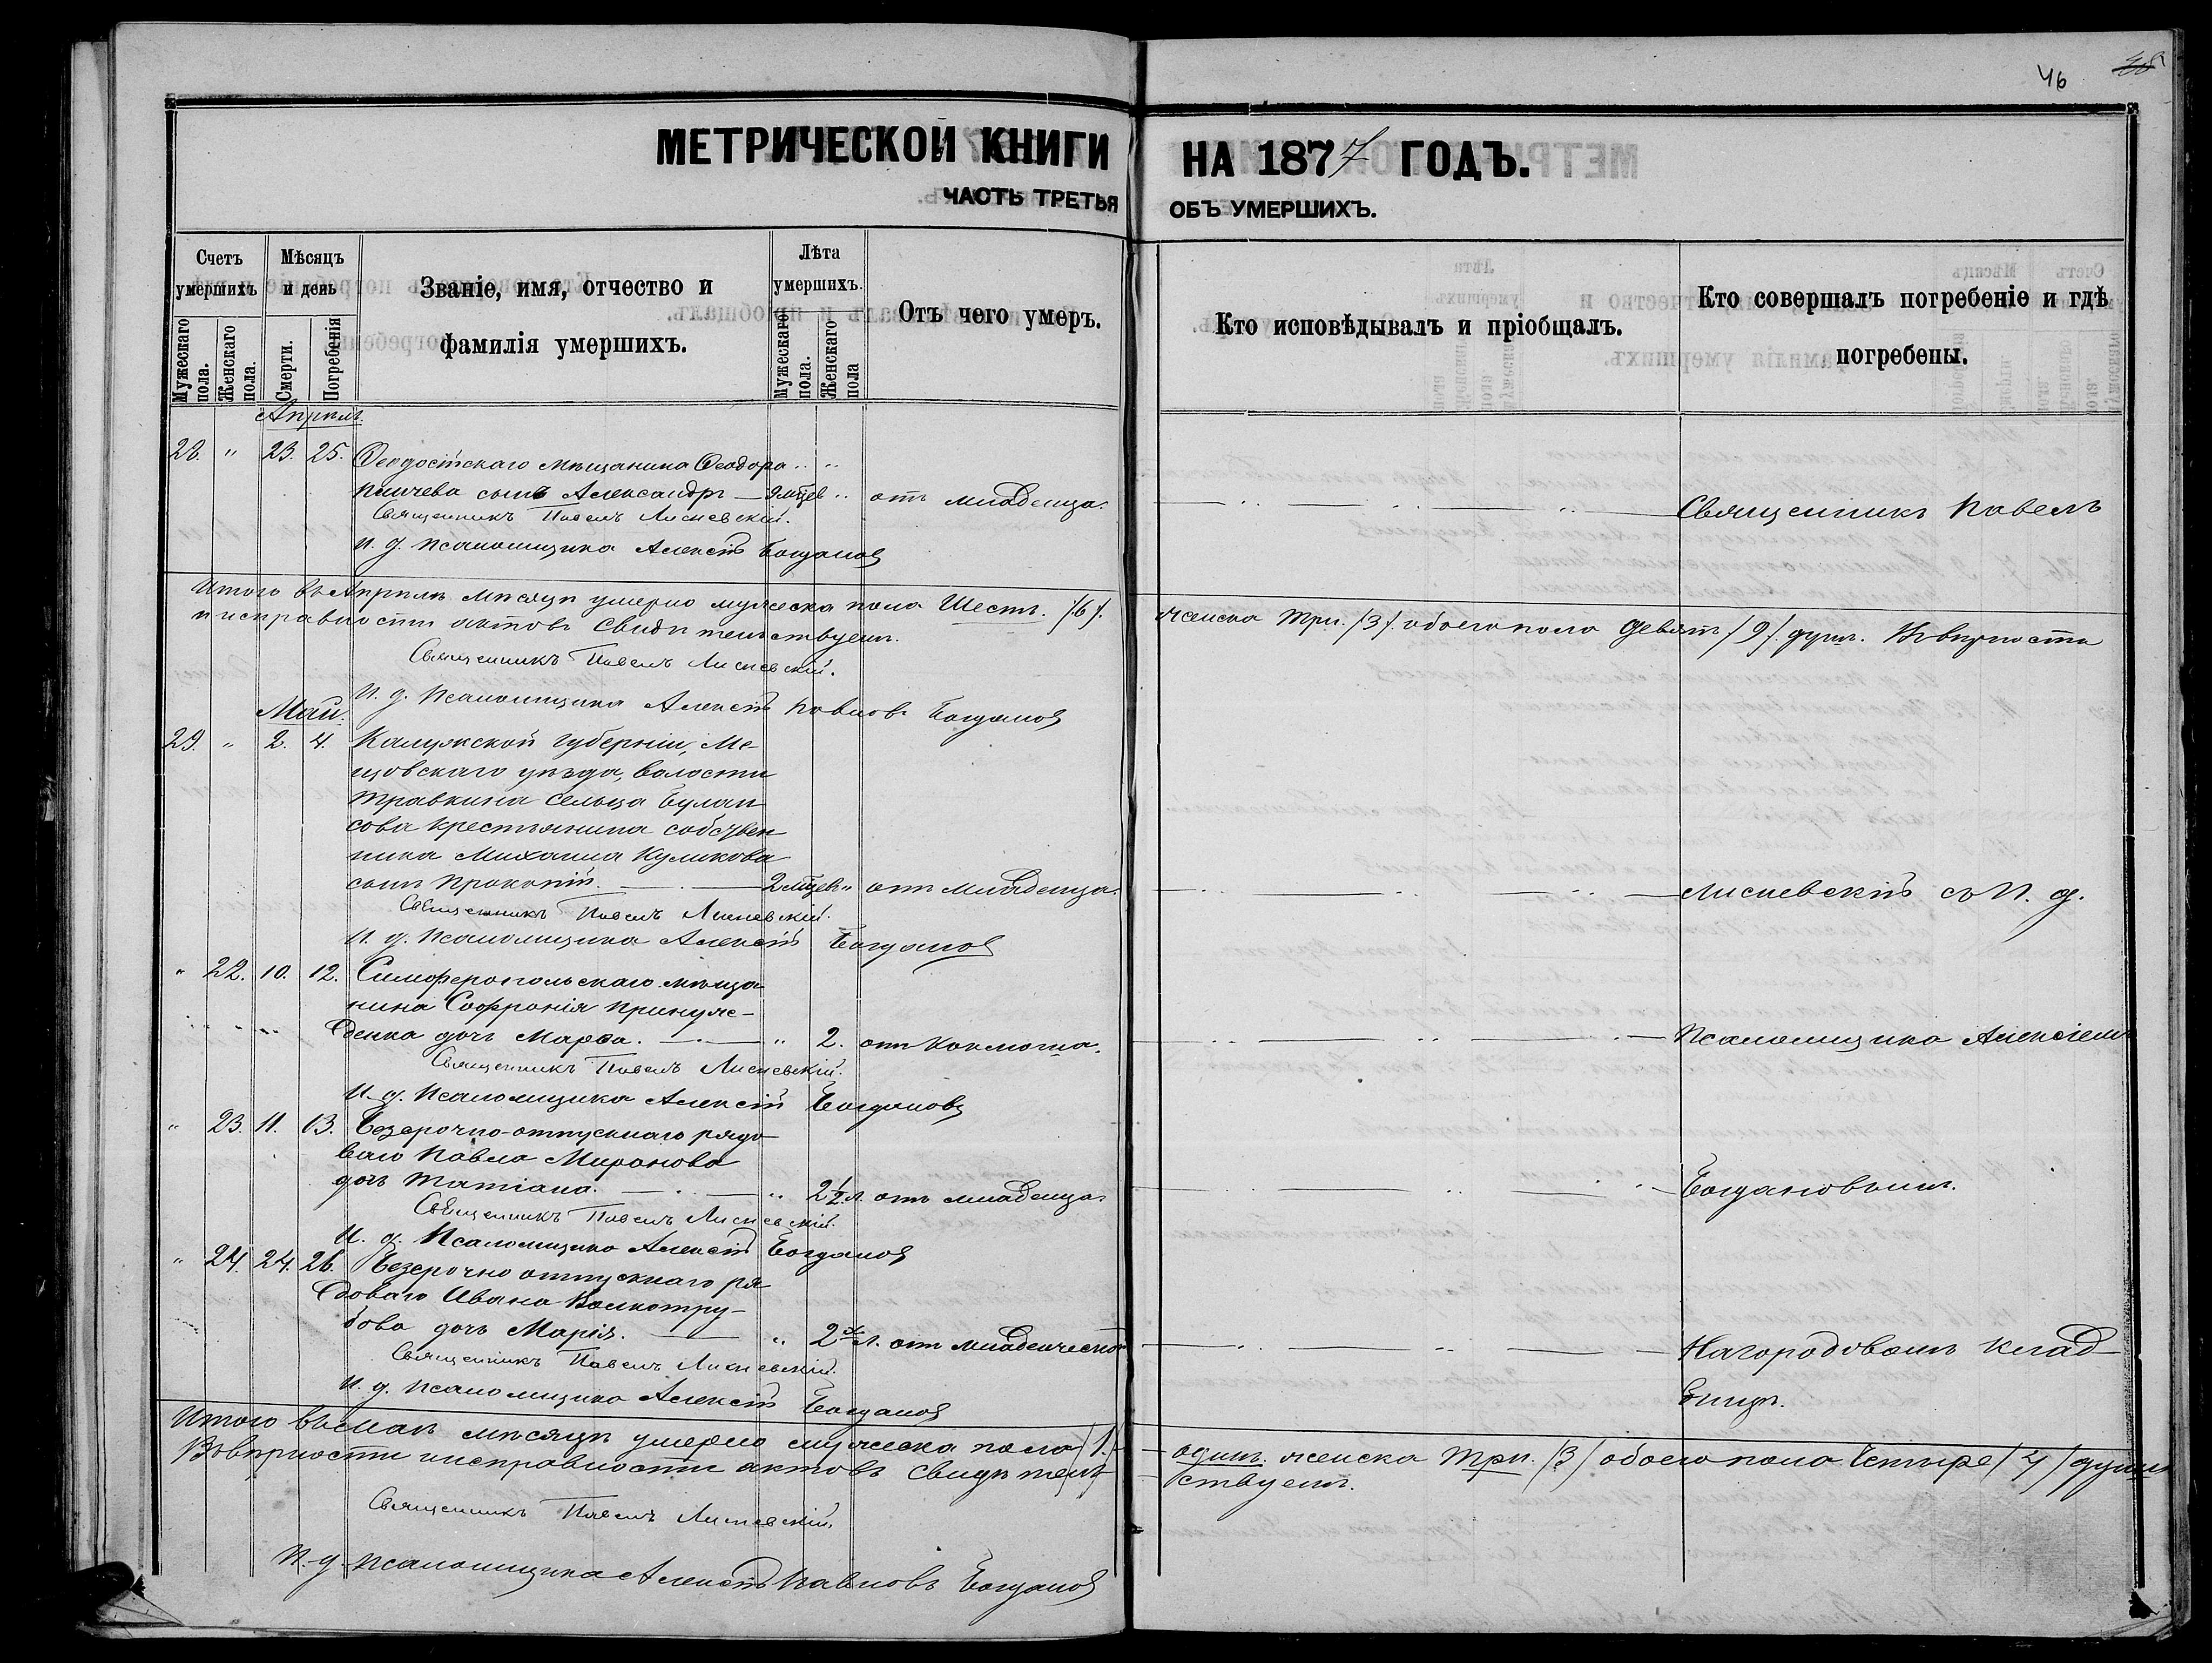 46
МЕТРИЧЕСКОЙ КНИГИ НА 1877 ГОДЪ.
ЧАСТЬ ТРЕТЬЯ ОБЪ УМЕРШИХЪ.
Счетъ умершихъ
Мужескаго пола.
Женскаго пола.
Мѣсяцъ и день
Смерти.
Погребенія
Званіе, имя, отчество и фамилія умершихъ.
Лѣта умершихъ.
Мужескаго пола.
Женскаго пола
Отъ чего умеръ.
Кто исповѣдывалъ и пріобщалъ.
Кто совершалъ погребеніе и гдѣ погребены.
Апрѣль.
28. " 23. 25. Ѳеодосійскаго мѣщанина Ѳеодора
сынъ Александръ — 9 мѣцев " отъ младенца. Священникъ Павелъ
Священникъ Павелъ Лисневскій.
И. д. псаломщика Алексѣй Богдановъ
Итого въ Апрѣлѣ мѣсяцѣ умерло мужеска пола Шесть. /6/. женска три. /3/. обоего пола девять /9/. душъ. Въ вѣрности
и исправности актовъ свидѣтельствуемъ.
Священникъ Павелъ Лисневскій.
И. д. псаломщика Алексѣй Павловъ Богдановъ
Май.
29. " 2. 4. Калужской губерніи, Ме-
щовскаго уѣзда, волости
Травкина сельца Булан
сова крестьянина собствен
ника Михаила Куликова
сынъ Прокопій. — 2 мѣцев " отъ младенца. Лисневскій съ И. д.
Священникъ Павелъ Лисневскій.
И. д. псаломщика Алексѣй Богдановъ
" 22. 10. 12. Симферопольскаго мѣща
нина Софронія Принуж-
денка дочь Марѳа. — " 2. отъ коклюша. Псаломщика Алексіемъ
Священникъ Павелъ Лисневскій.
И. д. псаломщика Алексѣй Богдановъ
" 23. 11. 13. Безсрочно-отпускнаго рядо
ваго Павла Миронова
дочь Татіана. — " 2½ л. отъ младенца. Богдановымъ.
Священникъ Павелъ Лисневскій.
И. д. Псаломщика Алексѣй Богдановъ
" 24. 24. 26. Безсрочно отпускнаго ря
доваго Ивана Волкотру-
бова дочь Марія. — " 2 л. отъ младенческой На городовомъ клад-
Священникъ Павелъ Лисневскій. бищѣ.
И. д. псаломщика Алексѣй Богдановъ
Итого въ маѣ мѣсяцѣ умерло мужеска пола /1./ одинъ. женска три. /3/ обоего пола четыре /4/ души
Въ вѣрности и исправности актовъ свидѣтель ствуемъ.
Священникъ Павелъ Лисневскій.
И. д. псаломщика Алексѣй Павловъ Богдановъ